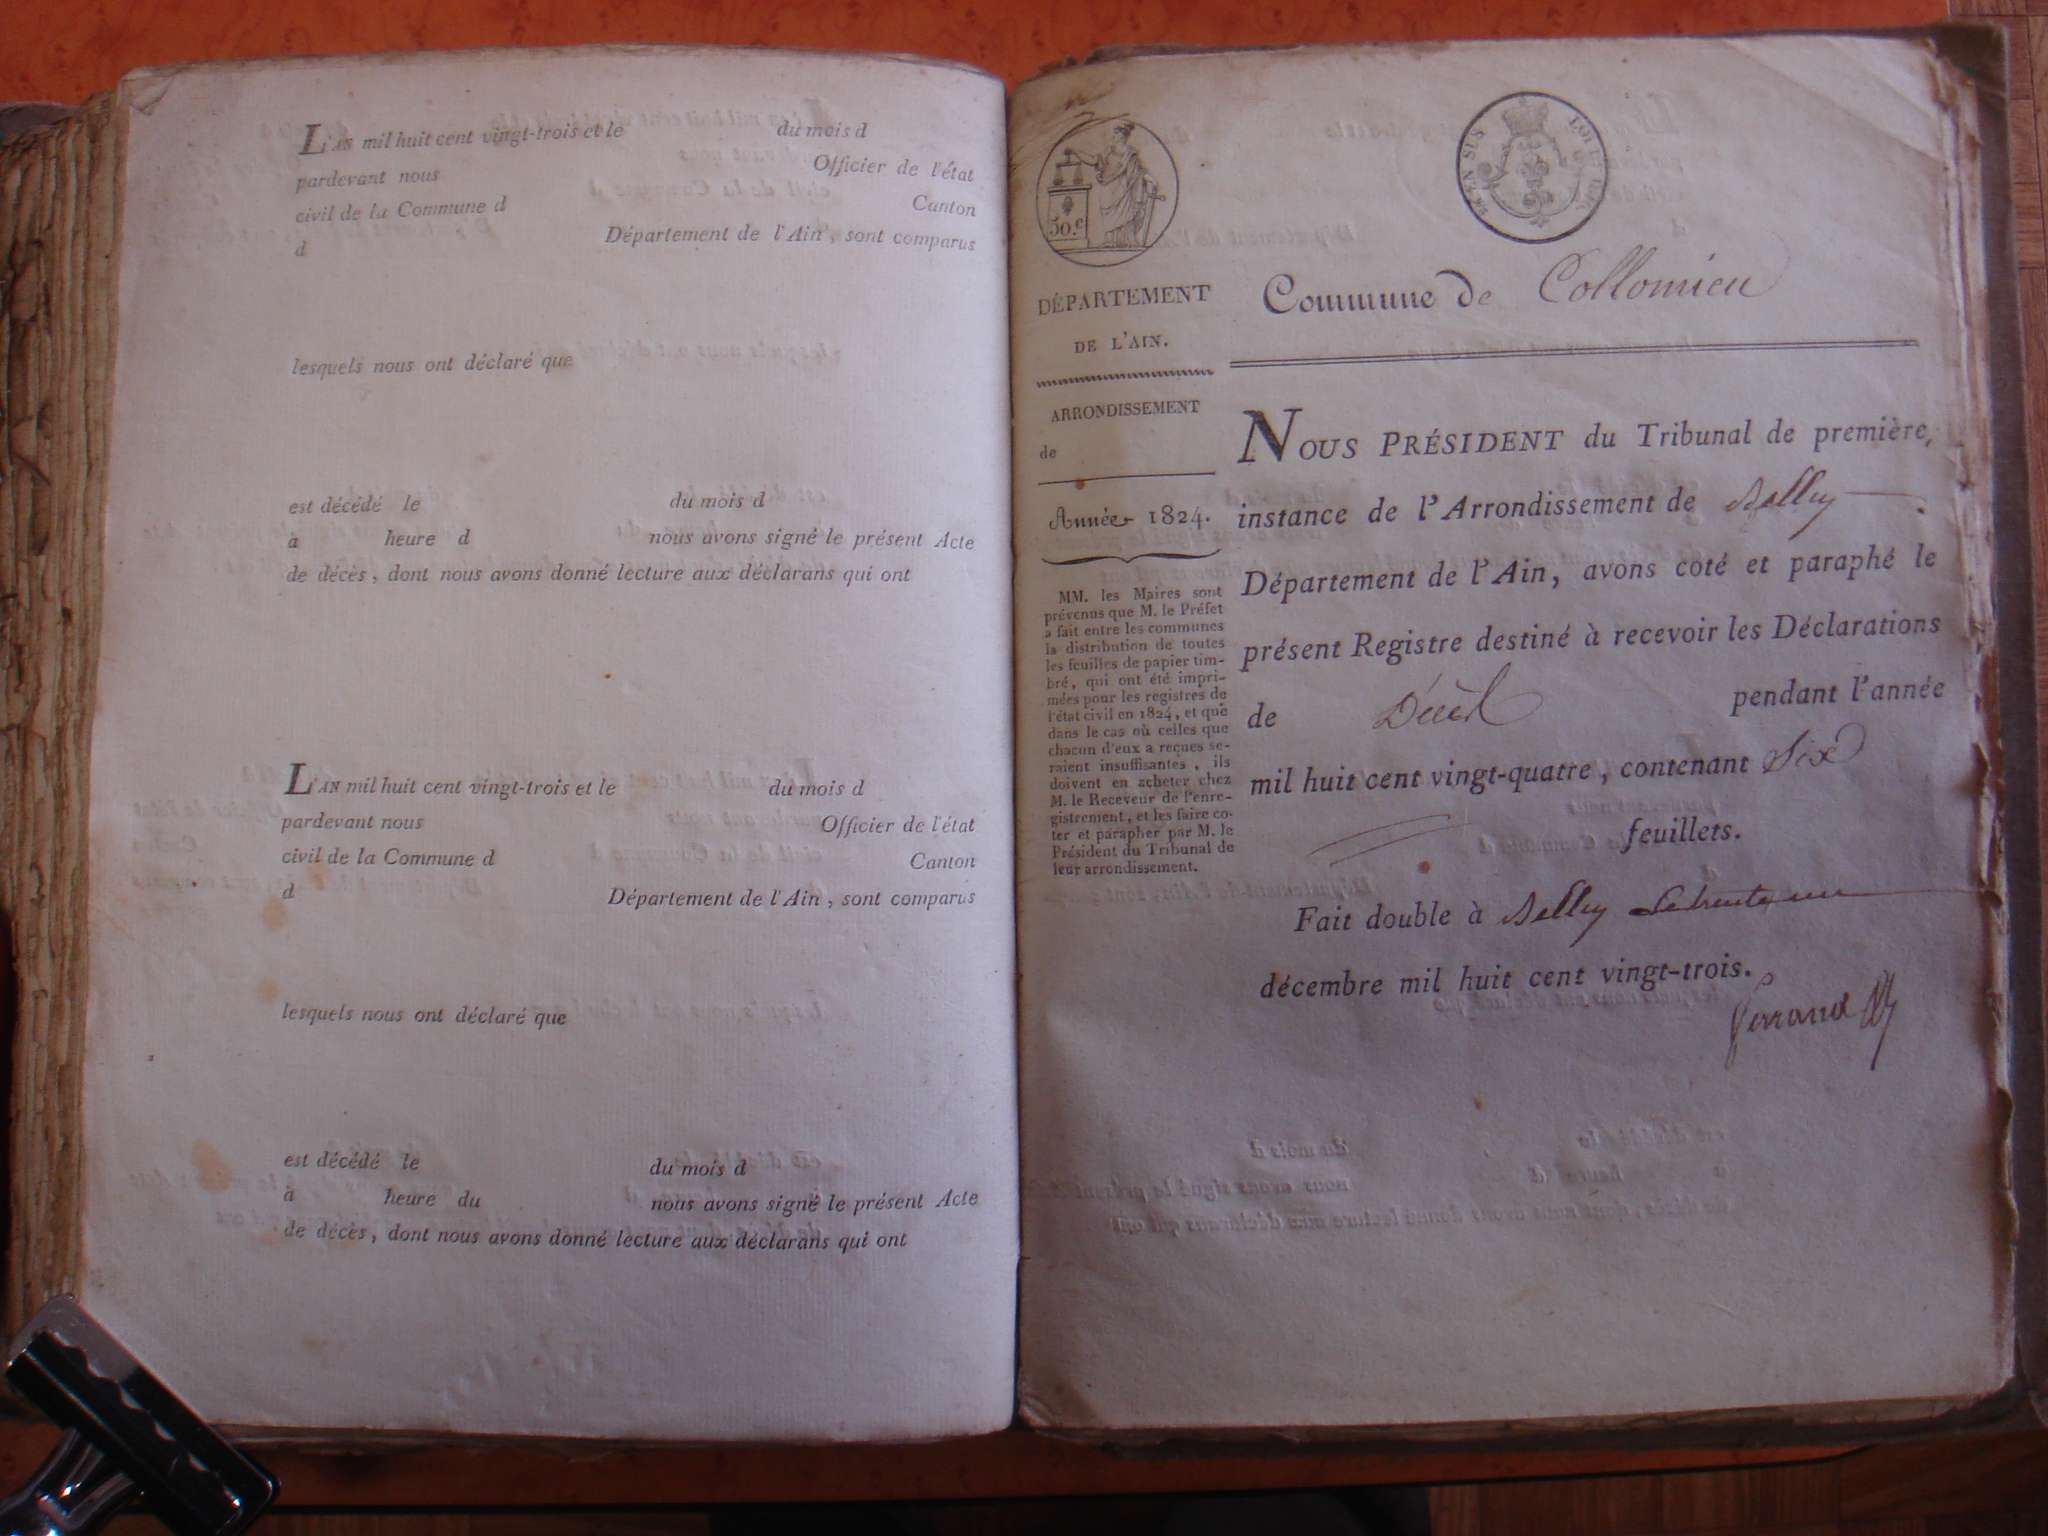 L'AN mil huit cent vingt-trois et le du mois d
pardevant nous Officier de l'état
civil de la Commune d Canton
d Département de l'Ain, sont comparus
lesquels nous ont déclaré que
est décédé le du mois d
à heure d nous avons signé le présent Acte
de décès, dont nous avons donné lecture aux déclarans qui ont
L'AN mil huit cent vingt-trois et le du mois d
pardevant nous Officier de l'état
civil de la Commune d Canton
d Département de l'Ain, sont comparus
lesquels nous ont déclaré que
est décédé le du mois d
à heure du nous avons signé le présent Acte
de décès, dont nous avons donné lecture aux déclarans qui ont
50.c
EN SUS
DÉPARTEMENT
DE L'AIN.
ARRONDISSEMENT
de
Année 1824.
MM. les Maires sont
prévenus que M. le Préfet
a fait entre les communes
la distribution de toutes
les feuilles de papier tim-
bré, qui ont été impri-
mées pour les registres de
l'état civil en 1824, et que
dans le cas où celles que
chacun d'eux a reçues se-
raient insuffisantes, ils
doivent en acheter chez
M. le Receveur de l'enre-
gistrement, et les faire co-
ter et parapher par M. le
Président du Tribunal de
leur arrondissement.
Commune de Collomieu
NOUS PRÉSIDENT du Tribunal de première,
instance de l'Arrondissement de Belley
Département de l'Ain, avons coté et paraphé le
présent Registre destiné à recevoir les Déclarations
de Décès pendant l'année
mil huit cent vingt-quatre, contenant Six
feuillets.
Fait double à Belley le trente un
décembre mil huit cent vingt-trois.